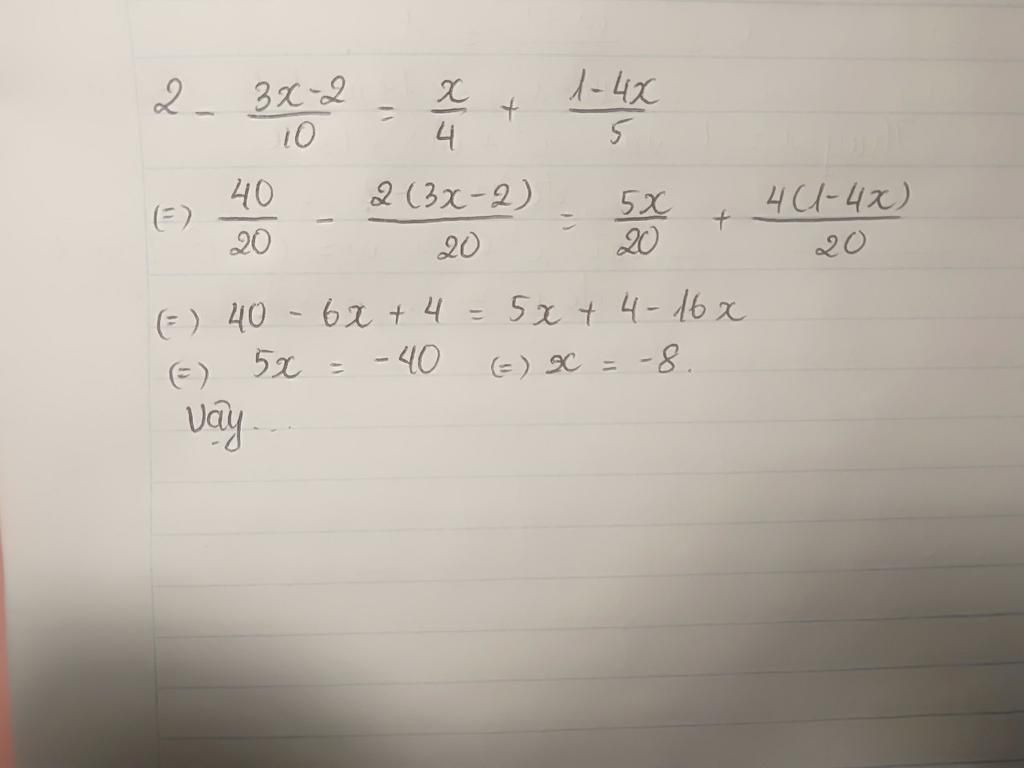 2 - \frac{3x-2}{10} = \frac{x}{4} + \frac{1-4x}{5}
(=) \frac{40}{20} - \frac{2(3x-2)}{20} = \frac{5x}{20} + \frac{4(1-4x)}{20}
(=) 40 - 6x + 4 = 5x + 4 - 16x
(=) 5x = -40 (=) x = -8.
Vậy...